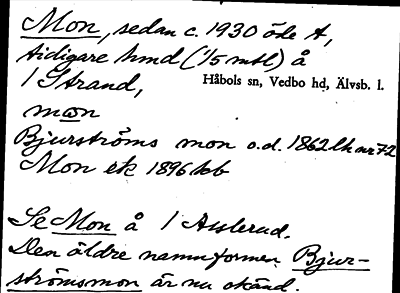 Mon, sedan c. 1930 öde A,
tidigare hmd (1/5 mtl) å
1 Strand, Håbols sn, Vedbo hd, Älvsb. l.
mωn
Bjurströms mon o.d. 1862 lh nr 72
Mon ek 1896 kb
Se Mon å 1 Asslerud.
Den äldre namnformen Bjur-
strömsmon är nu okänd.